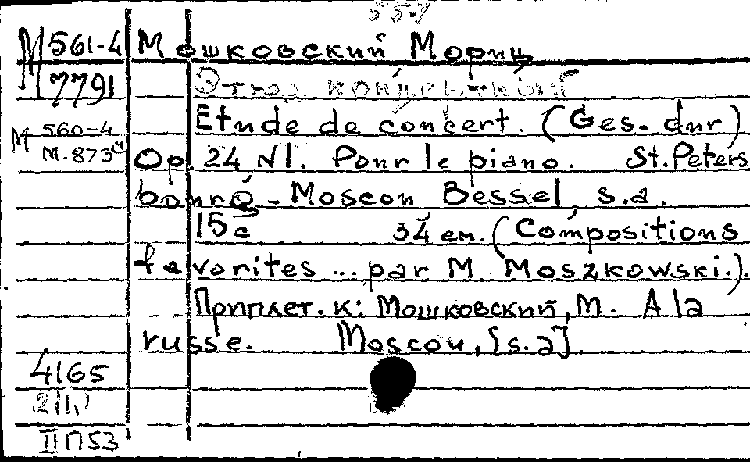 М 561-4 Мошковский Мориц
М 7791 Этюд концертный
Etude de concert. (Ges. dur)
М 560-4
М-873 Op. 24 N1. Pour le piano. St. Peters
bourg - Moscou Bessel, s.a.
15 с 34 см. (Compositions
favorites ... par M. Moszkowski.).
Приплет. к: Мошковский, М. A la
russe. Moscou, [s.a].
4165
II П53